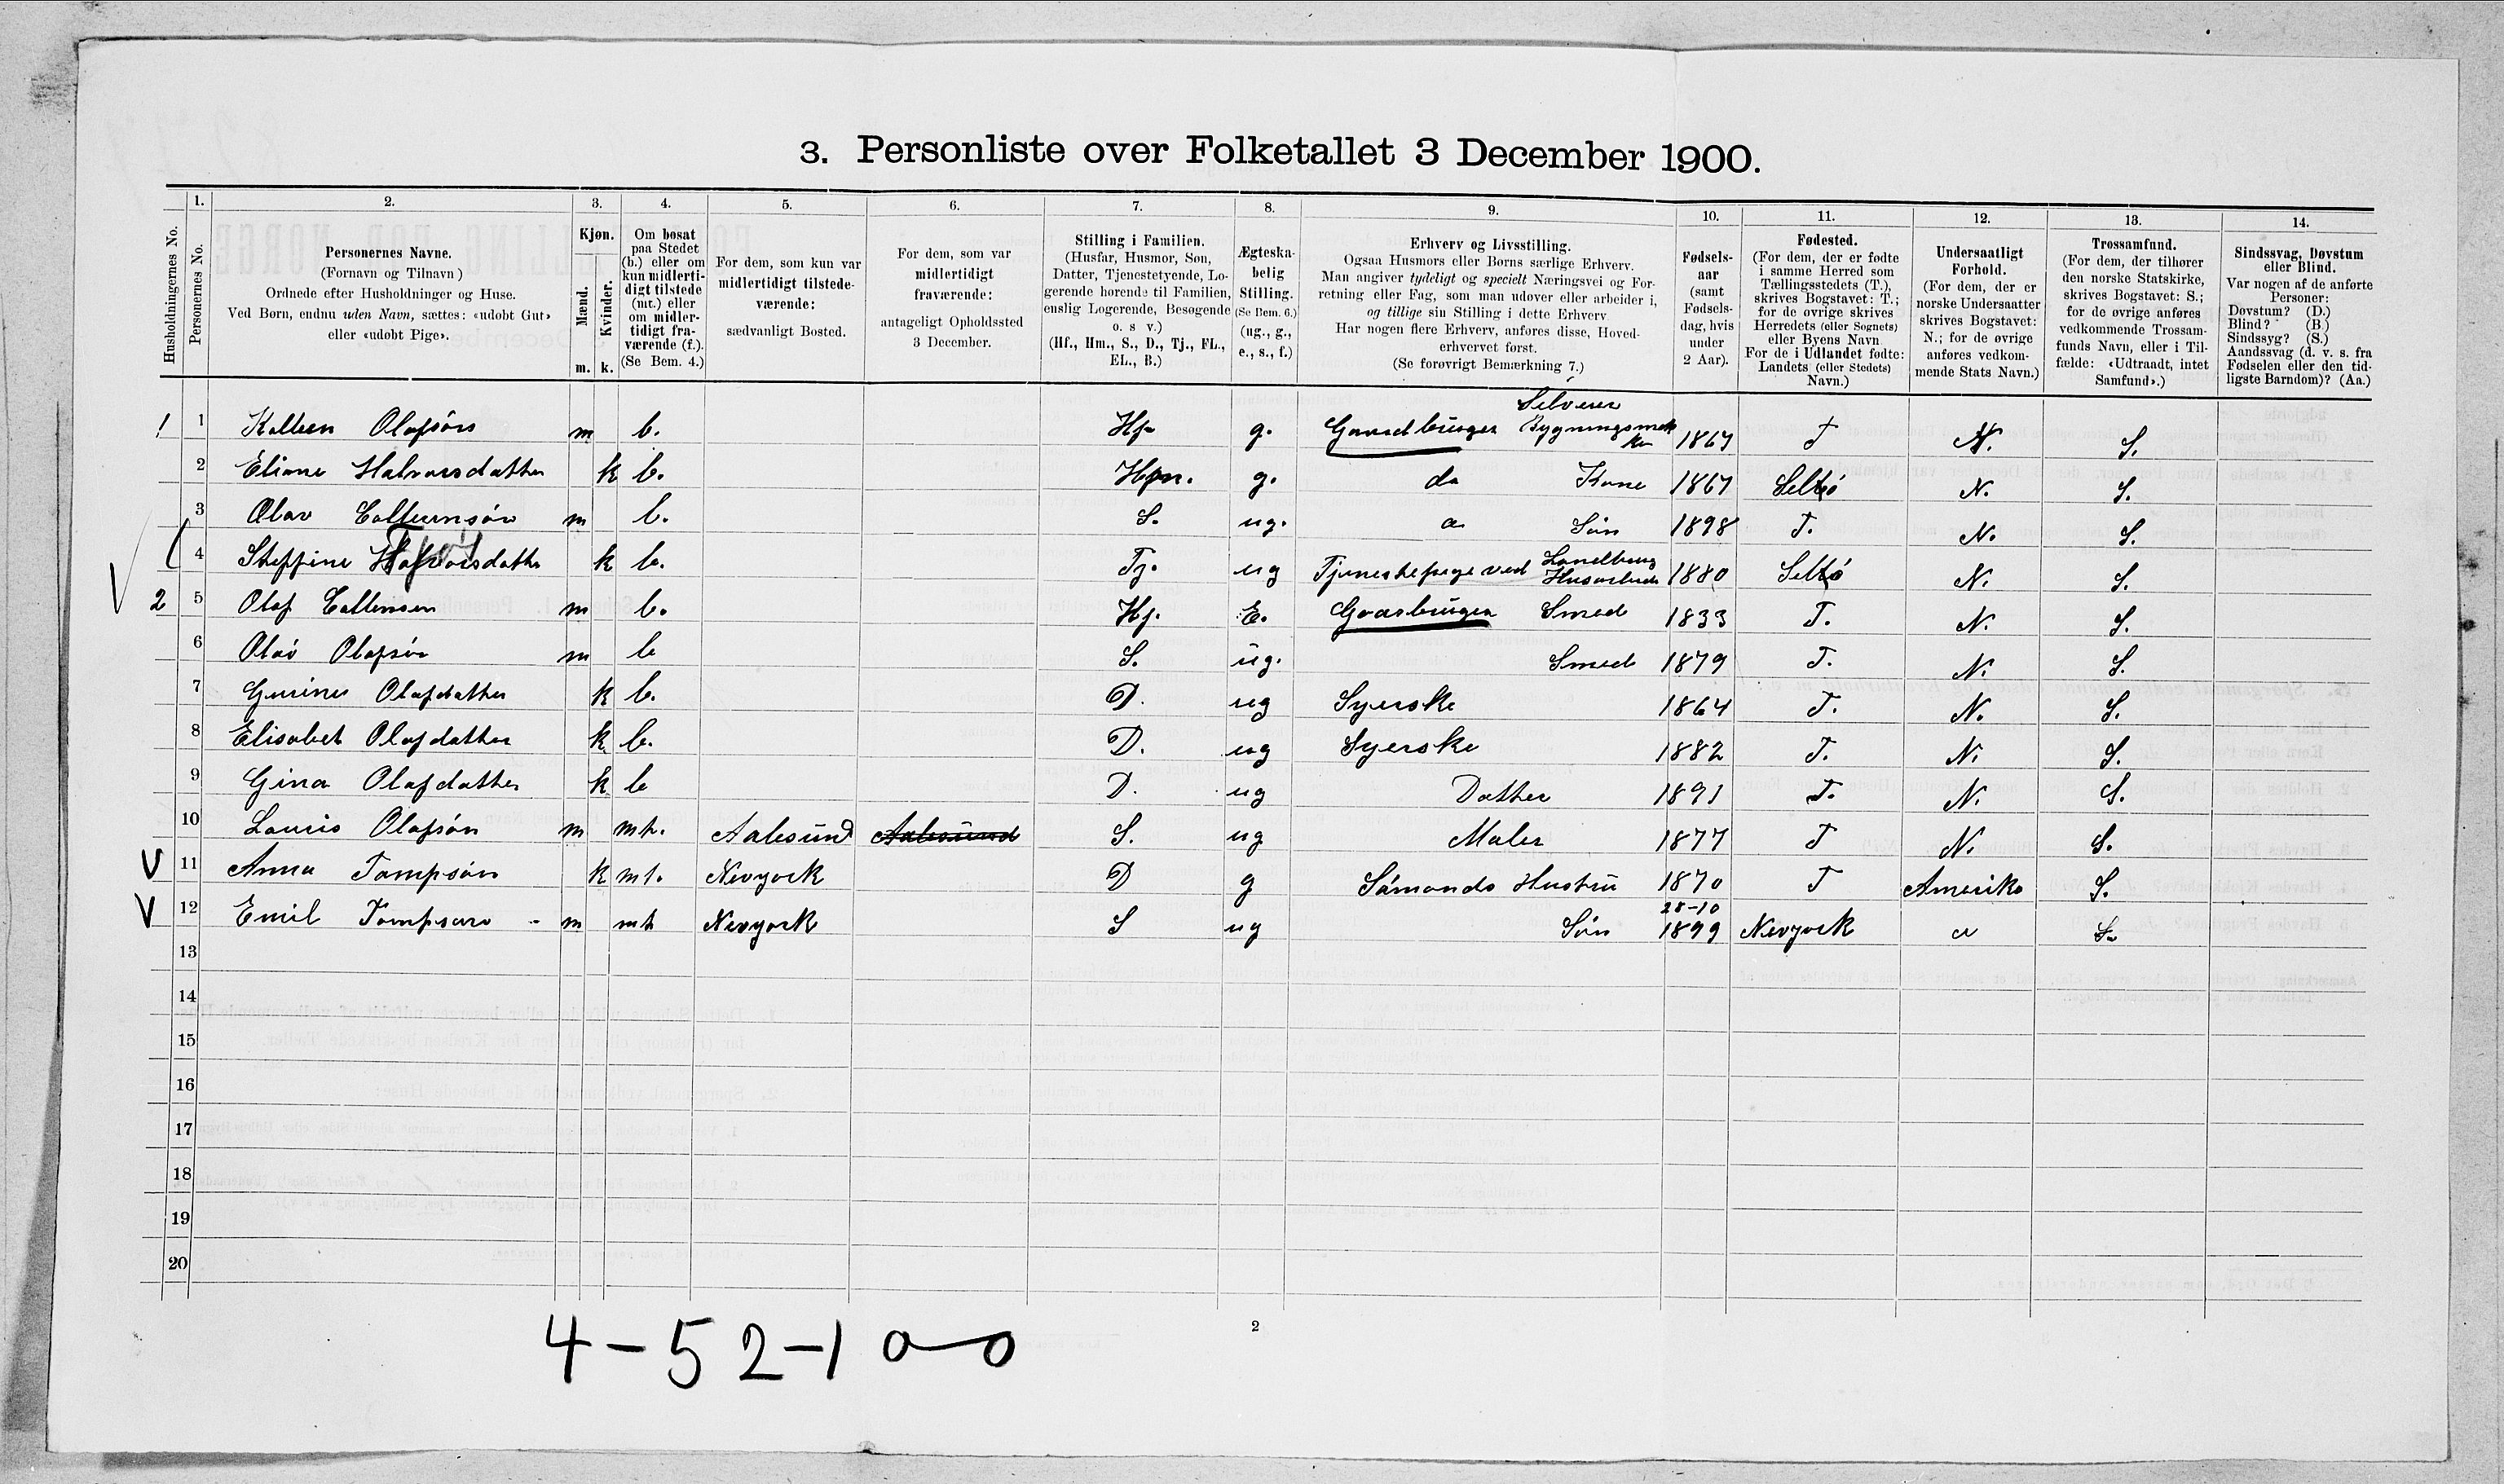 3. Personliste over Folketallet 3 December 1900.
Husholdningernes No.
1. Personernes No.
2. Personernes Navne.
(Fornavn og Tilnavn)
Ordnede efter Husholdninger og Huse.
Ved Børn, endnu uden Navn, sættes: «udøbt Gut»
eller «udøbt Pige».
3. Kjøn.
Mænd. Kvinder.
m. k.
4. Om bosat
paa Stedet
(b.) eller om
kun midlerti-
digt tilstede
(mt.) eller
om midler-
tidigt fra-
værende (f.).
(Se Bem. 4.)
5. For dem, som kun var
midlertidigt tilstede-
værende:
sædvanligt Bosted.
6. For dem, som var
midlertidigt
fraværende:
antageligt Opholdssted
3 December.
7. Stilling i Familien.
(Husfar, Husmor, Søn,
Datter, Tjenestetyende, Lo-
gerende hørende til Familien,
enslig Logerende, Besøgende
o. s v.)
(Hf., Hm., S., D., Tj., FL.,
EL., B.)
8. Ægteska-
belig
Stilling.
(Se Bem. 6.)
(ug., g.,
e., s., f.)
9. Erhverv og Livsstilling.
Ogsaa Husmors eller Børns særlige Erhverv.
Man angiver tydeligt og specielt Næringsvei og For-
retning eller Fag, som man udøver eller arbeider i,
og tillige sin Stilling i dette Erhverv
Har nogen flere Erhverv, anføres disse, Hoved-
erhvervet først.
(Se forøvrigt Bemærkning 7.)
10. Fødsels-
aar
(samt
Fødsels-
dag, hvis
under
2 Aar).
11. Fødested.
(For dem, der er fødte
i samme Herred som
Tællingsstedets (T.),
skrives Bogstavet: T.;
for de øvrige skrives
Herredets (eller Sognets)
eller Byens Navn
For de i Udlandet fødte:
Landets (eller Stedets)
Navn.)
12. Undersaatligt
Forhold.
(For dem, der er
norske Undersaatter
skrives Bogstavet:
N.; for de øvrige
anføres vedkom-
mende Stats Navn.)
13. Trossamfund.
(For dem, der tilhører
den norske Statskirke,
skrives Bogstavet: S.;
for de øvrige anføres
vedkommende Trossam-
funds Navn, eller i Til-
fælde: «Udtraadt, intet
Samfund».)
14. Sindssvag, Døvstum
eller Blind.
Var nogen af de anførte
Personer:
Døvstum? (D.)
Blind? (B.)
Sindssyg? (S.)
Aandssvag (d. v. s. fra
Fødselen eller den tid-
ligste Barndom)? (Aa.)
1 1 Olafsøn m b. Hf. g. Gaardbruger Selveier 1867 T N. S.
2 Eliane Halvorsdatter k b. Hm. g. do Kone 1867 N. S.
3 Olav m b. S. ug. Søn 1898 T. N. S.
4 k b. Tj. ug Tjenestepige ved 1880 N. S.
2 5 Olaf m b. Hf. E. Smed 1833 T. N. S.
6 Olav Olafsøn m b S. ug. Smed 1879 T. N. S.
7 Gurine Olafdatter k b. D. ug Syerske 1864 T. N. S.
8 Elisabet Olafdatter k b. D. ug Syerske 1882 T. N. S.
9 Gina Olafdatter k b D. ug Datter 1891 T. N. S.
10 Lauris Olafsøn m mt. Aalesund Aalesund S. ug Maler 1877 T N. S.
V 11 Anna Tompsøn k mt. Nevyork D g Sømands Hustru 1870 T Amerika S.
V 12 Emil m mt Nevyork S ug Søn 28-10 1899 Nevyork S.
13
14
15
16
17
18
19
20
4-52-1 0-0
2